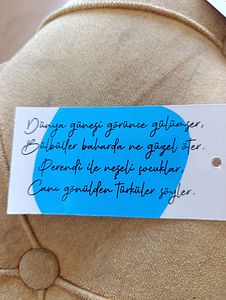 Dünya güneşi görünce gülümser,
Bülbüller baharda ne güzel öter.
Perendi ile neşeli çocuklar,
Canı gönülden türküler söyler.